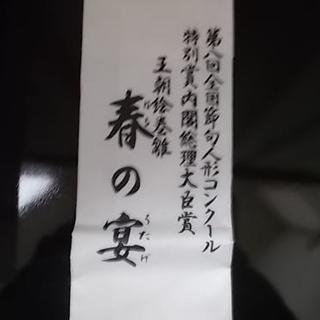 第八回全国節句人形コンクール
特別賞内閣総理大臣賞
王朝絵巻雅
春の宴
うたげ